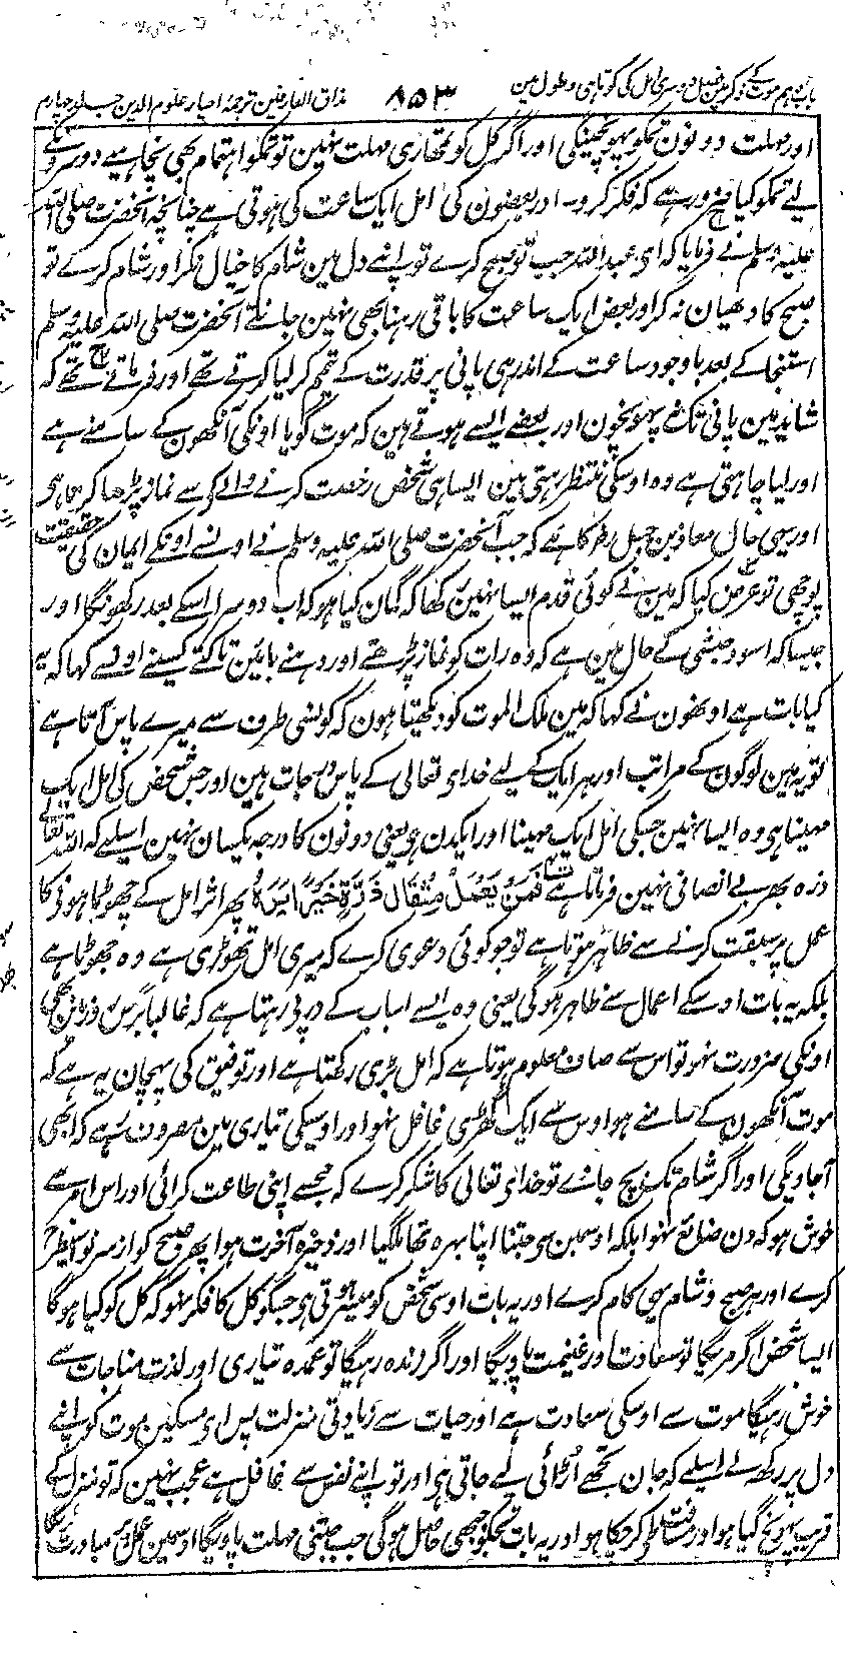 باب دہم موت کے ذکر مین فصل دوسری امل کی کوتاہی و طول مین ۸۵۳ مذاق العارفین ترجمۂ احیاء علوم الدین جلد چہارم
اور مہلت دونون تمکو پہونچینگی اور اگر کل کو تمھاری مہلت نہین تو تمکو اہتمام بھی نچاہیے دوسرونکے
لیے تمکو کیا ضرور ہے کہ فکر کرو۔ اور بعضون کی امل ایک ساعت کی ہوتی ہے چنانچہ آنحضرت صلی اللہ
علیہ وسلم نے فرمایا کہ ای عبد اللہ جب تو صبح کرے تو اپنے دل مین شام کا خیال نکر اور شام کرے تو
صبح کا دھیان نہ کر اور بعض ایک ساعت کا باقی رہنا بھی نہین جانتے آنحضرت صلی اللہ علیہ وسلم
استنجا کے بعد باوجود ساعت کے اندر ہی پانی پر قدرت کے تیمم کر لیا کرتے تھے اور فرماتے تھے کہ
شاید مین پانی تک نہ پہونچون اور بعضے ایسے ہوتے ہین کہ موت گویا اونکی آنکھون کے سامنے ہے
اور لیا چاہتی ہے وہ اوسکی منتظر رہتی ہین ایسا ہی شخص رخصت کرنے والے کی سی نماز پڑھا کرتا ہی
اور یہی حال معاذ بن جبل رض کا ہے کہ جب آنحضرت صلی اللہ علیہ وسلم نے اونسے اونکے ایمان کی حقیقت
پوچھی تو عرض کیا کہ مین نے کوئی قدم ایسا نہین رکھا کہ گمان کیا ہو کہ اب دوسرا اسکے بعد رکھونگا اور
جیسا کہ اسود حبشی کے حال مین ہے کہ وہ رات کو نماز پڑھتے اور دہنے بائین تاکتے کسینے اونسے کہا کہ یہ
کیا بات ہے اونھون نے کہا کہ مین ملک الموت کو دیکھتا ہون کہ کونسی طرف سے میرے پاس آتا ہے
تو یہ ہین لوگون کے مراتب اور ہر ایک کے لیے خدای تعالی کے پاس درجات ہین اور جس شخص کی امل ایک
مہینا ہی وہ ایسا نہین جسکی امل ایک مہینا اور ایکدن ہی یعنی دونون کا درجہ یکسان نہین اسلیے کہ اللہ تعالے
ذرہ بھر بے انصافی نہین فرماتا ہے فَمَنْ یَعْمَلْ مِثْقَالَ ذَرَّةٍ خَیْرًا یَرَهٗ پھر اثر امل کے چھوٹا ہونیکا
عمل پر سبقت کرنے سے ظاہر ہوتا ہے تو جو کوئی دعوی کرے کہ میری امل تھوڑی ہے وہ جھوٹا ہے
بلکہ یہ بات اوسکے اعمال سے ظاہر ہوگی یعنی وہ ایسے اسباب کے درپی رہتا ہے کہ غالبا برس روز مین بھی
اونکی ضرورت نہو تو اس سے صاف معلوم ہوتا ہے کہ امل بڑی رکھتا ہے اور توفیق کی پہچان یہ ہے کہ
موت آنکھون کے سامنے ہو اوس سے ایک گھڑی غافل نہو اور اوسیکی تیاری مین مصروف رہے کہ ابھی
آجاویگی اور اگر شام تک بچ جائے تو خدای تعالی کا شکر کرے کہ مجسے اپنی طاعت کرائی اور اس امر سے
خوش ہو کہ دن ضائع نہوا بلکہ اوسمین سی جتنا اپنا بہرہ تھا ملگیا اور ذخیرہ آخرت ہوا پھر صبح کو از سر نو اسیطرح
کرے اور ہر صبح و شام یہی کام کرے اور یہ بات اوسی شخص کو میسر ہوتی ہی جسکو کل کا فکر نہو کہ کل کو کیا ہوگا
ایسا شخص اگر مریگا تو سعادت اور غنیمت پاویگا اور اگر زندہ رہیگا تو عمدہ تیاری اور لذت مناجات سے
خوش رہیگا موت سے اوسکی سعادت ہے اور حیات سے زیادتی منزلت پس ای مسکین موت کو اپنے
دل پر رکھ لے اسلیے کہ جان تجھے اڑائی لیے جاتی ہی اور تو اپنے نفس سے غافل ہے عجب نہین کہ تو منزل کے
قریب پہونچ گیا ہو اور مسافت طی کر چکا ہو اور یہ بات تجھکو جبھی حاصل ہوگی جب جتنی مہلت پاویگا اوسمین عمل پر مبادرت کریگا